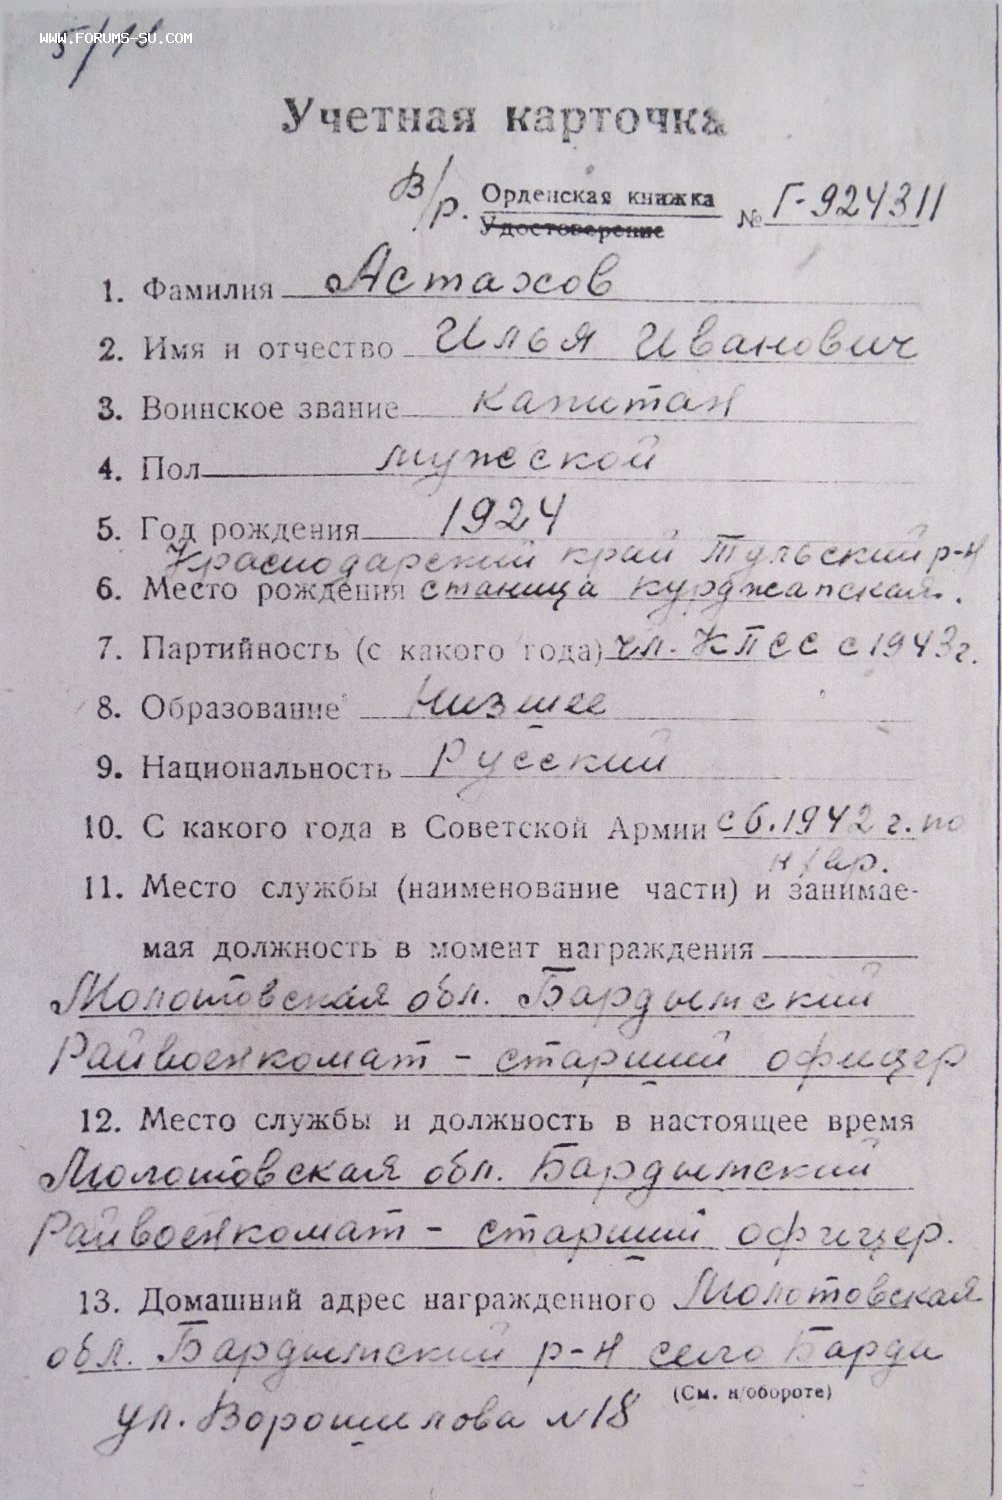 WWW.FORUMS-SU.COM
5/13
Учетная карточка
В/р. Орденская книжка № Г-924311
Удостоверение
1. Фамилия Астахов
2. Имя и отчество Илья Иванович
3. Воинское звание капитан
4. Пол мужской
5. Год рождения 1924
Краснодарский край Тульский р-н
6. Место рождения станица курджапская.
7. Партийность (с какого года) чл. КПСС с 1943г.
8. Образование Низшее
9. Национальность Русский
10. С какого года в Советской Армии с 6.1942 г. по
н/вр.
11. Место службы (наименование части) и занимае-
мая должность в момент награждения
Молотовская обл. Бардымский
Райвоенкомат - старший офицер
12. Место службы и должность в настоящее время
Молотовская обл. Бардымский
Райвоенкомат - старший офицер.
13. Домашний адрес награжденного Молотовская
обл. Бардымский р-н село Барда
(См. н/обороте)
ул. Ворошилова N 18